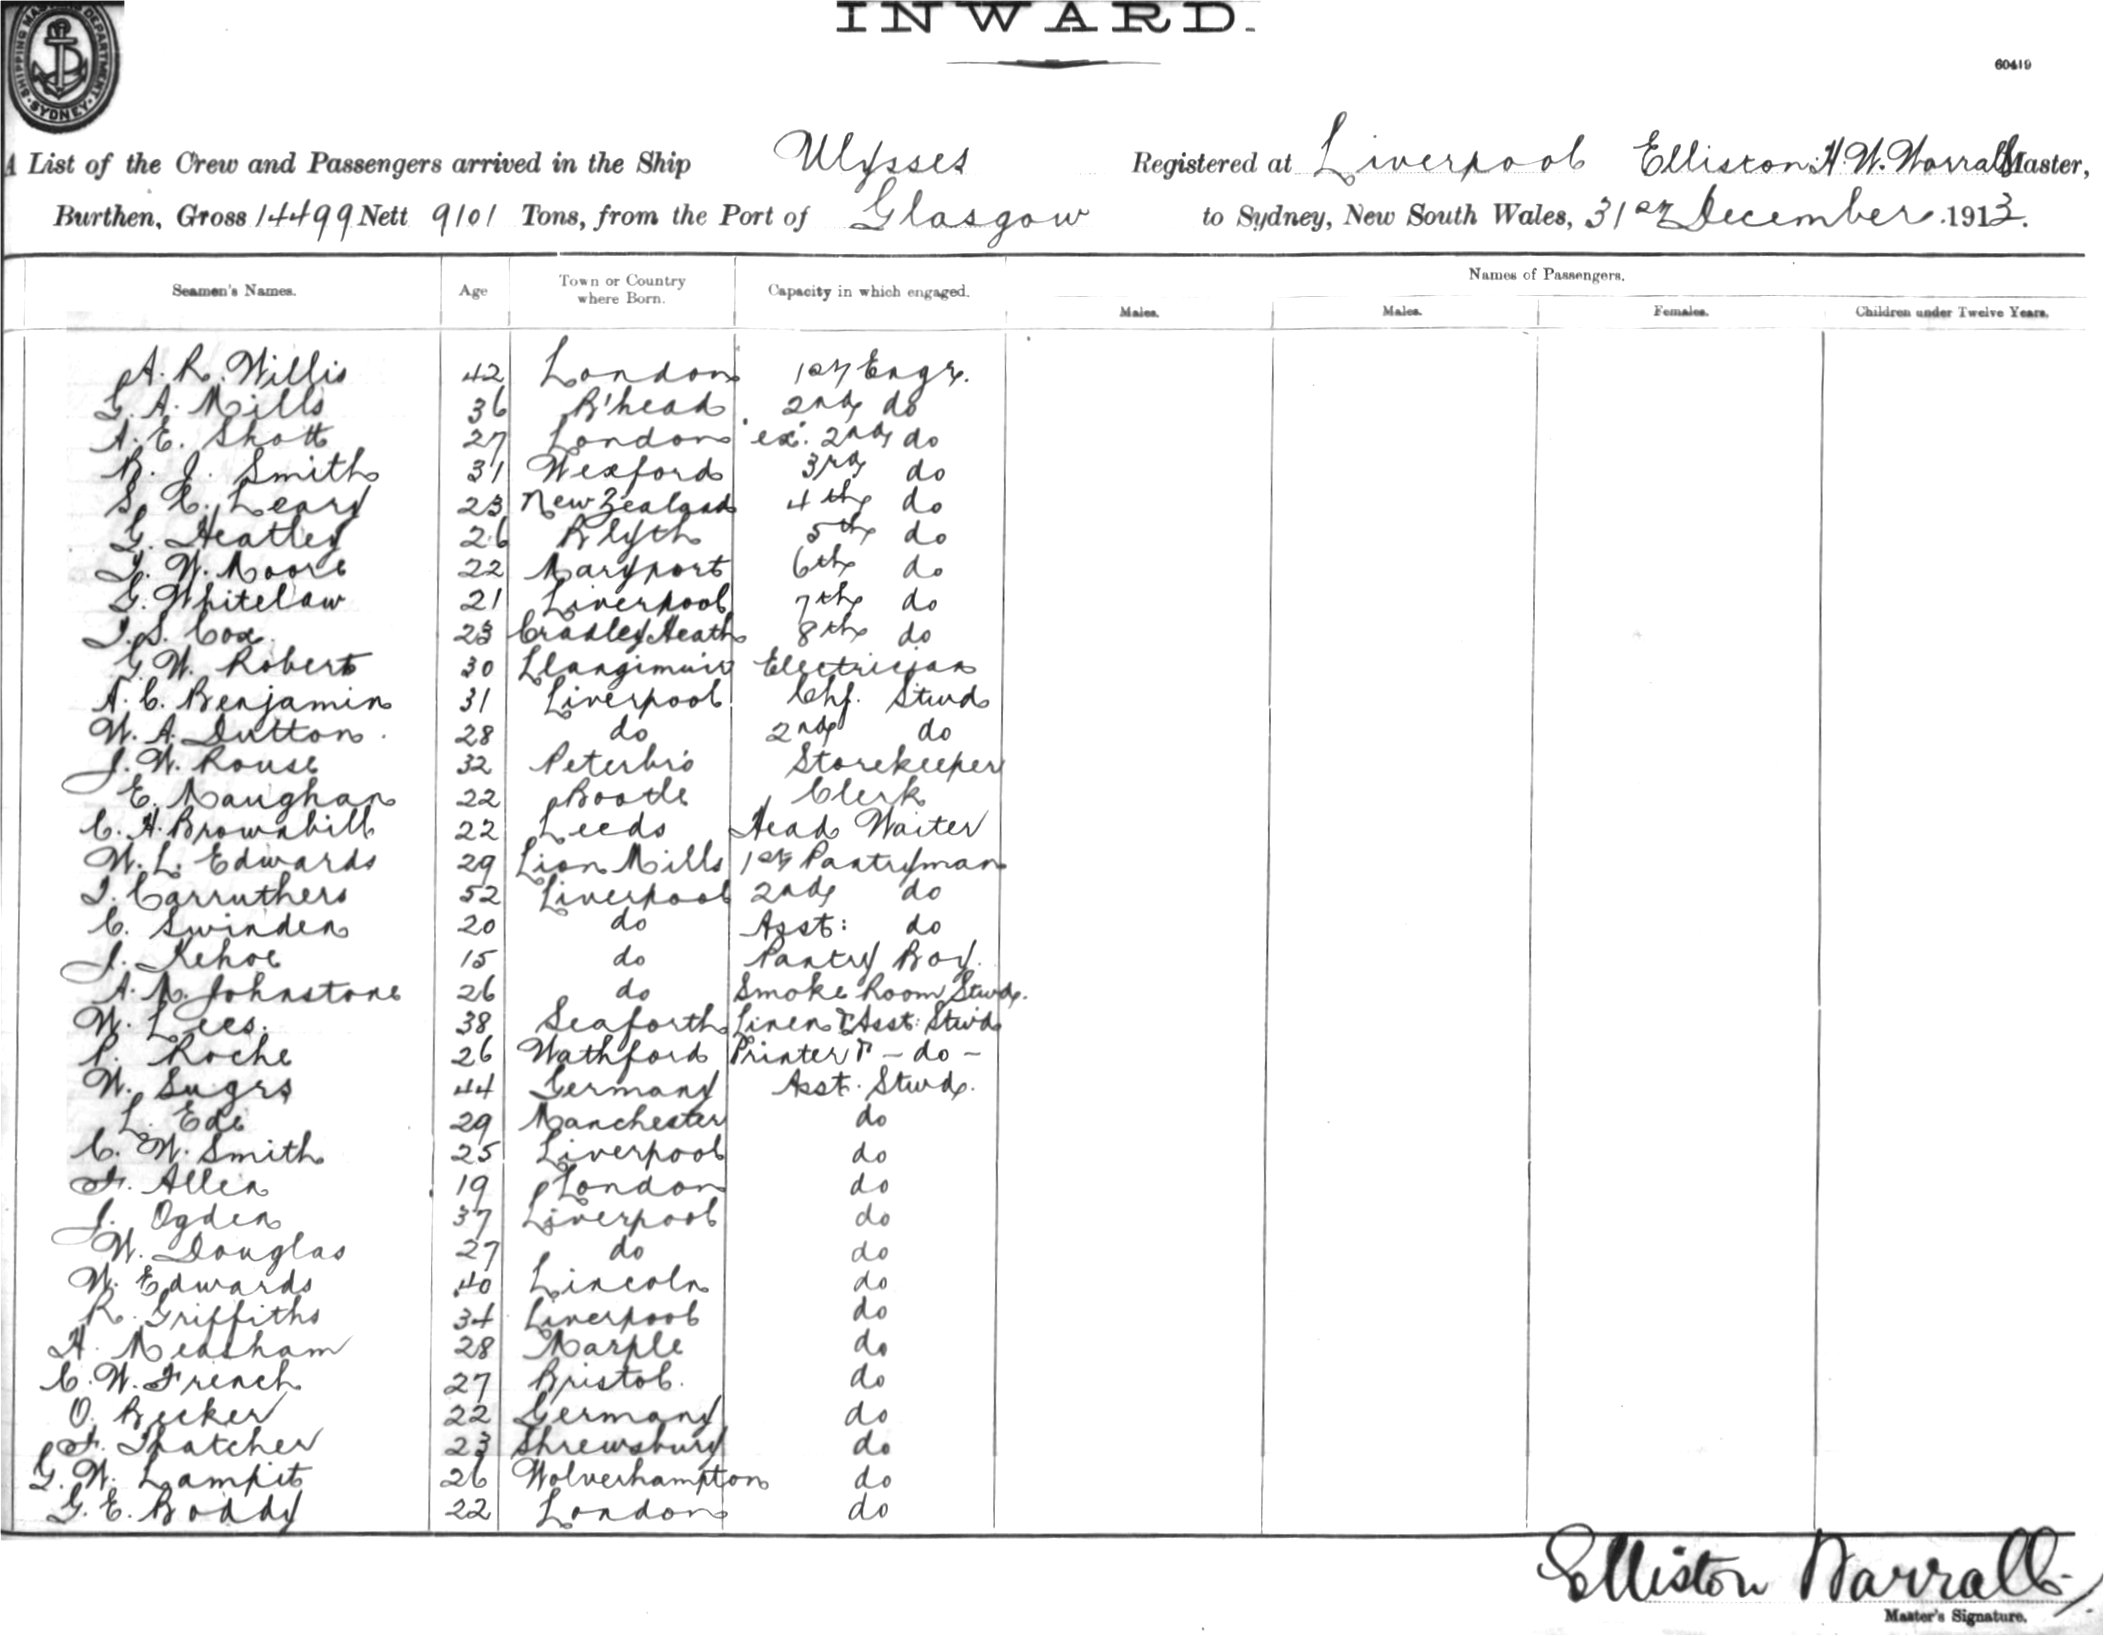 INWARD.
SHIPPING MASTERS DEPARTMENT SYDNEY
60419
A List of the Crew and Passengers arrived in the Ship Ulysses Registered at Liverpool Elliston H. W. Warrall Master,
Burthen, Gross 14499 Nett 9101 Tons, from the Port of Glasgow to Sydney, New South Wales, 31st December 1913.
Seamen's Names. Age Town or Country where Born. Capacity in which engaged. Names of Passengers.
Males. Males. Females. Children under Twelve Years.
A. R. Willis 42 London 1st Engr.
G. A. Mills 36 B'head 2nd do
A. E. Shott 27 London "ex". 2nd do
B. J. Smith 31 Wexford 3rd do
S. E. Leary 23 New Zealand 4th do
G. Heatley 26 Blyth 5th do
T. W. Moore 22 Maryport 6th do
G. Whitelaw 21 Liverpool 7th do
T. S. Cox. 23 Cradley Heath 8th do
G. W. Roberts 30 Llangimuir Electrician
A. C. Benjamin 31 Liverpool Chf. Stwd
W. A. Dutton. 28 do 2nd do
J. W. Rouse 32 Peterbro' Storekeeper
E. Maughan 22 Bootle Clerk
C. H. Brownbill 22 Leeds Head Waiter
W. L. Edwards 29 Lion Mills 1st Pantryman
T. Carruthers 52 Liverpool 2nd do
C. Swinden 20 do Asst: do
J. Kehoe 15 do Pantry Boy.
A. M. Johnstone 26 do Smoke Room Stwd.
W. Lees. 38 Seaforth Linen & Asst: Stwd
P. Roche 26 Wathford Printer & - do -
W. Sugrs 44 Germany Asst. Stwd.
L. Ede 29 Manchester do
C. W. Smith 25 Liverpool do
F. Allen 19 London do
J. Ogden 37 Liverpool do
W. Douglas 27 do do
W. Edwards 40 Lincoln do
R. Griffiths 34 Liverpool do
H. Measham 28 Marple do
C. W. French 27 Bristol. do
O. Becker 22 Germany do
F. Thatcher 23 Shrewsbury do
G. W. Lampit 26 Wolverhampton do
G. E. Boddy 22 London do
Elliston Warrall
Master's Signature.